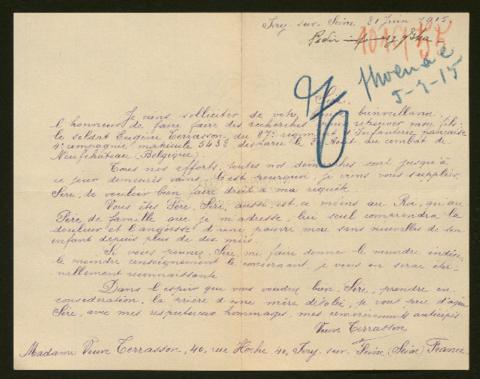 Ivry-sur-Seine, 21 Juin 1915.
Sire,
Je viens solliciter de votre bienveillance
l'honneur de faire faire des recherches pour retrouver mon fils
le soldat Eugène Terrasson, du 87e régiment d'Infanterie française
4e compagnie, matricule disparu le Août au combat de
Neufchâteau (Belgique).
Tous nos efforts, toutes nos démarches sont jusqu'à
ce jour demeurés vains. C'est pourquoi, je viens vous supplier,
Sire, de vouloir bien faire droit à ma requête.
Vous êtes Père, Sire, aussi, est-ce moins au Roi, qu'au
Père de famille que je m'adresse, lui seul comprendra la
douleur et l'angoisse d'une pauvre mère sans nouvelles de son
enfant depuis plus de dix mois.
Si vous pouvez, Sire, me faire donner le moindre indice,
le moindre renseignement le concernant, je vous en serai éter-
nellement reconnaissante.
Dans l'espoir que vous voudrez bien, Sire, prendre en
considération, la prière d'une mère désolée, je vous prie d'agréer
Sire, avec mes respectueux hommages, mes remerciements anticipés
Veuve Terrasson
Madame Veuve Terrasson, 40, rue Hoche 40, Ivry-sur-Seine (Seine) France